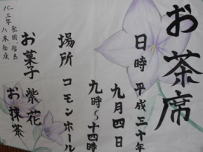 お茶席
日時 平成三十年
九月四日
九時〜十四時
場所 コモンホール
お菓子 紫花
お抹茶